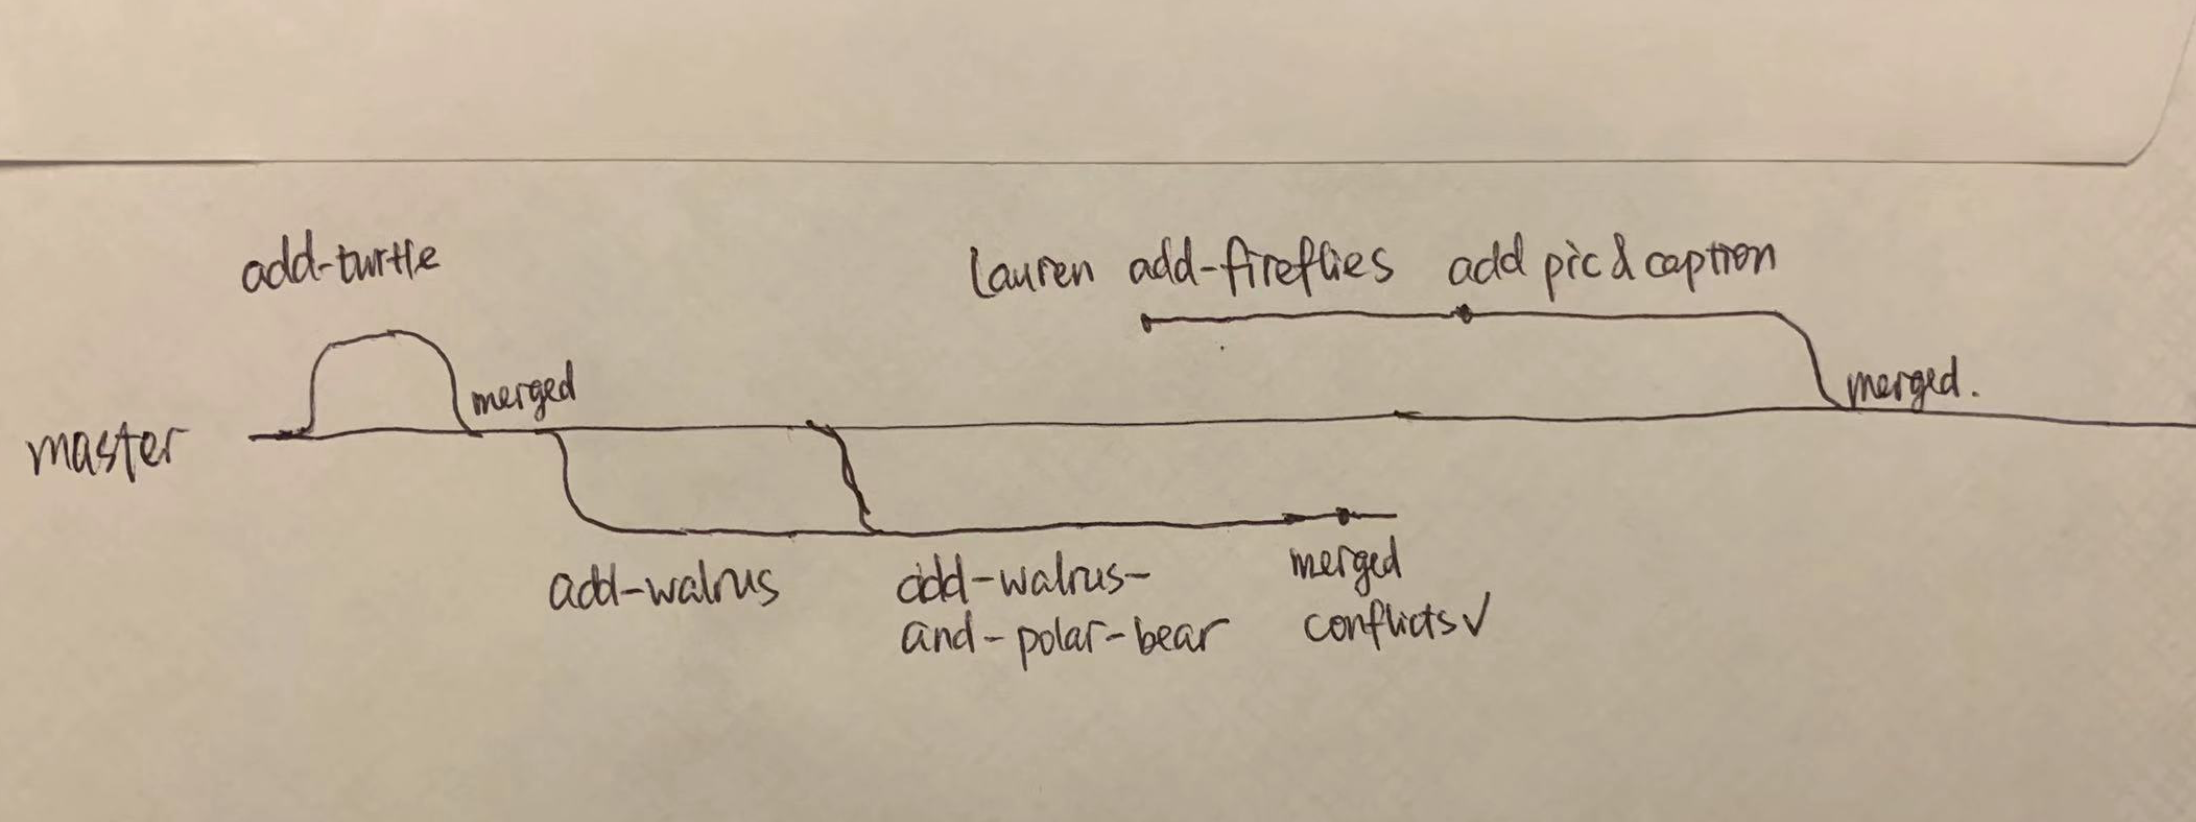 add-turtle
Lauren add-fireflies add pic & caption
merged
merged.
master
add-walrus
add-walrus-
and-polar-bear
merged
conflicts✓